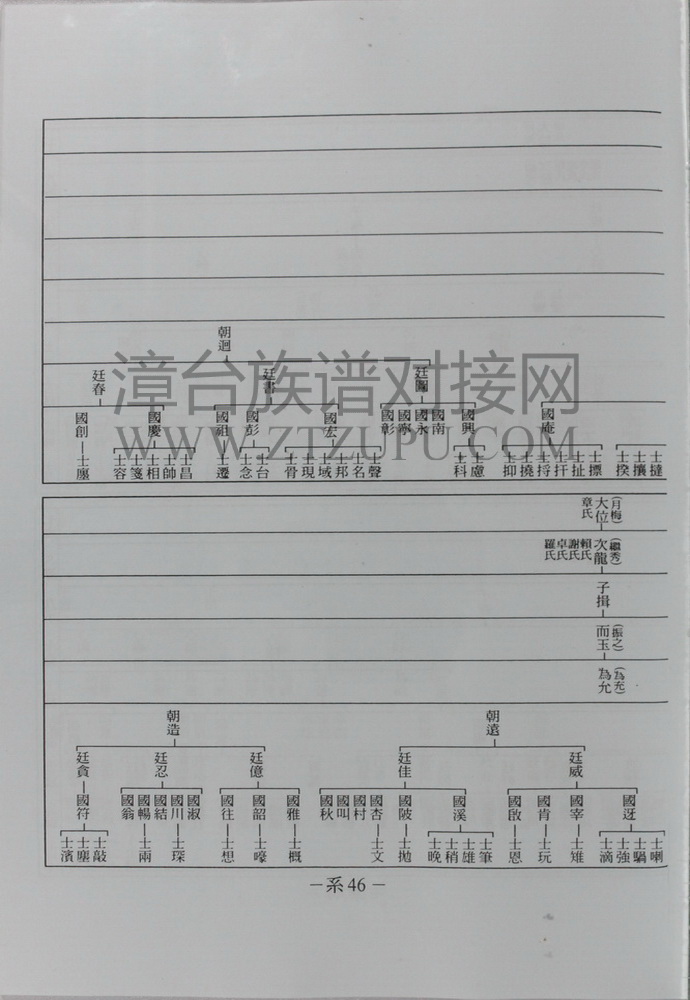 朝迥
廷圖
廷書
廷春
國庵
國興
國南
國永
國寧
國彰
國宏
國彭
國祖
國慶
國創
士撻
士攘
士揆
士摽
士扯
士扞
士捋
士撓
士抑
士慮
士科
士聲
士名
士邦
士域
士現
士骨
士台
士念
士遷
士昌
士帥
士相
士箋
士容
士塵
(月梅)
大位
章氏
(繼秀)
次龍
賴氏
謝氏
卓氏
羅氏
子揖
(振之)
而玉
(為充)
為允
朝遠
朝造
廷威
廷佳
廷億
廷忍
廷貪
國迓
國宰
國肯
國啟
國溪
國陂
國杏
國村
國叫
國秋
國雅
國韶
國往
國淑
國川
國結
國暢
國翁
國符
士喇
士騧
士強
士滴
士雉
士玩
士恩
士筆
士雄
士稍
士晚
士拋
士文
士概
士嚎
士想
士琛
士兩
士敲
士塵
士濱
－系 46－
漳台族谱对接网
WWW.ZTZUPU.COM